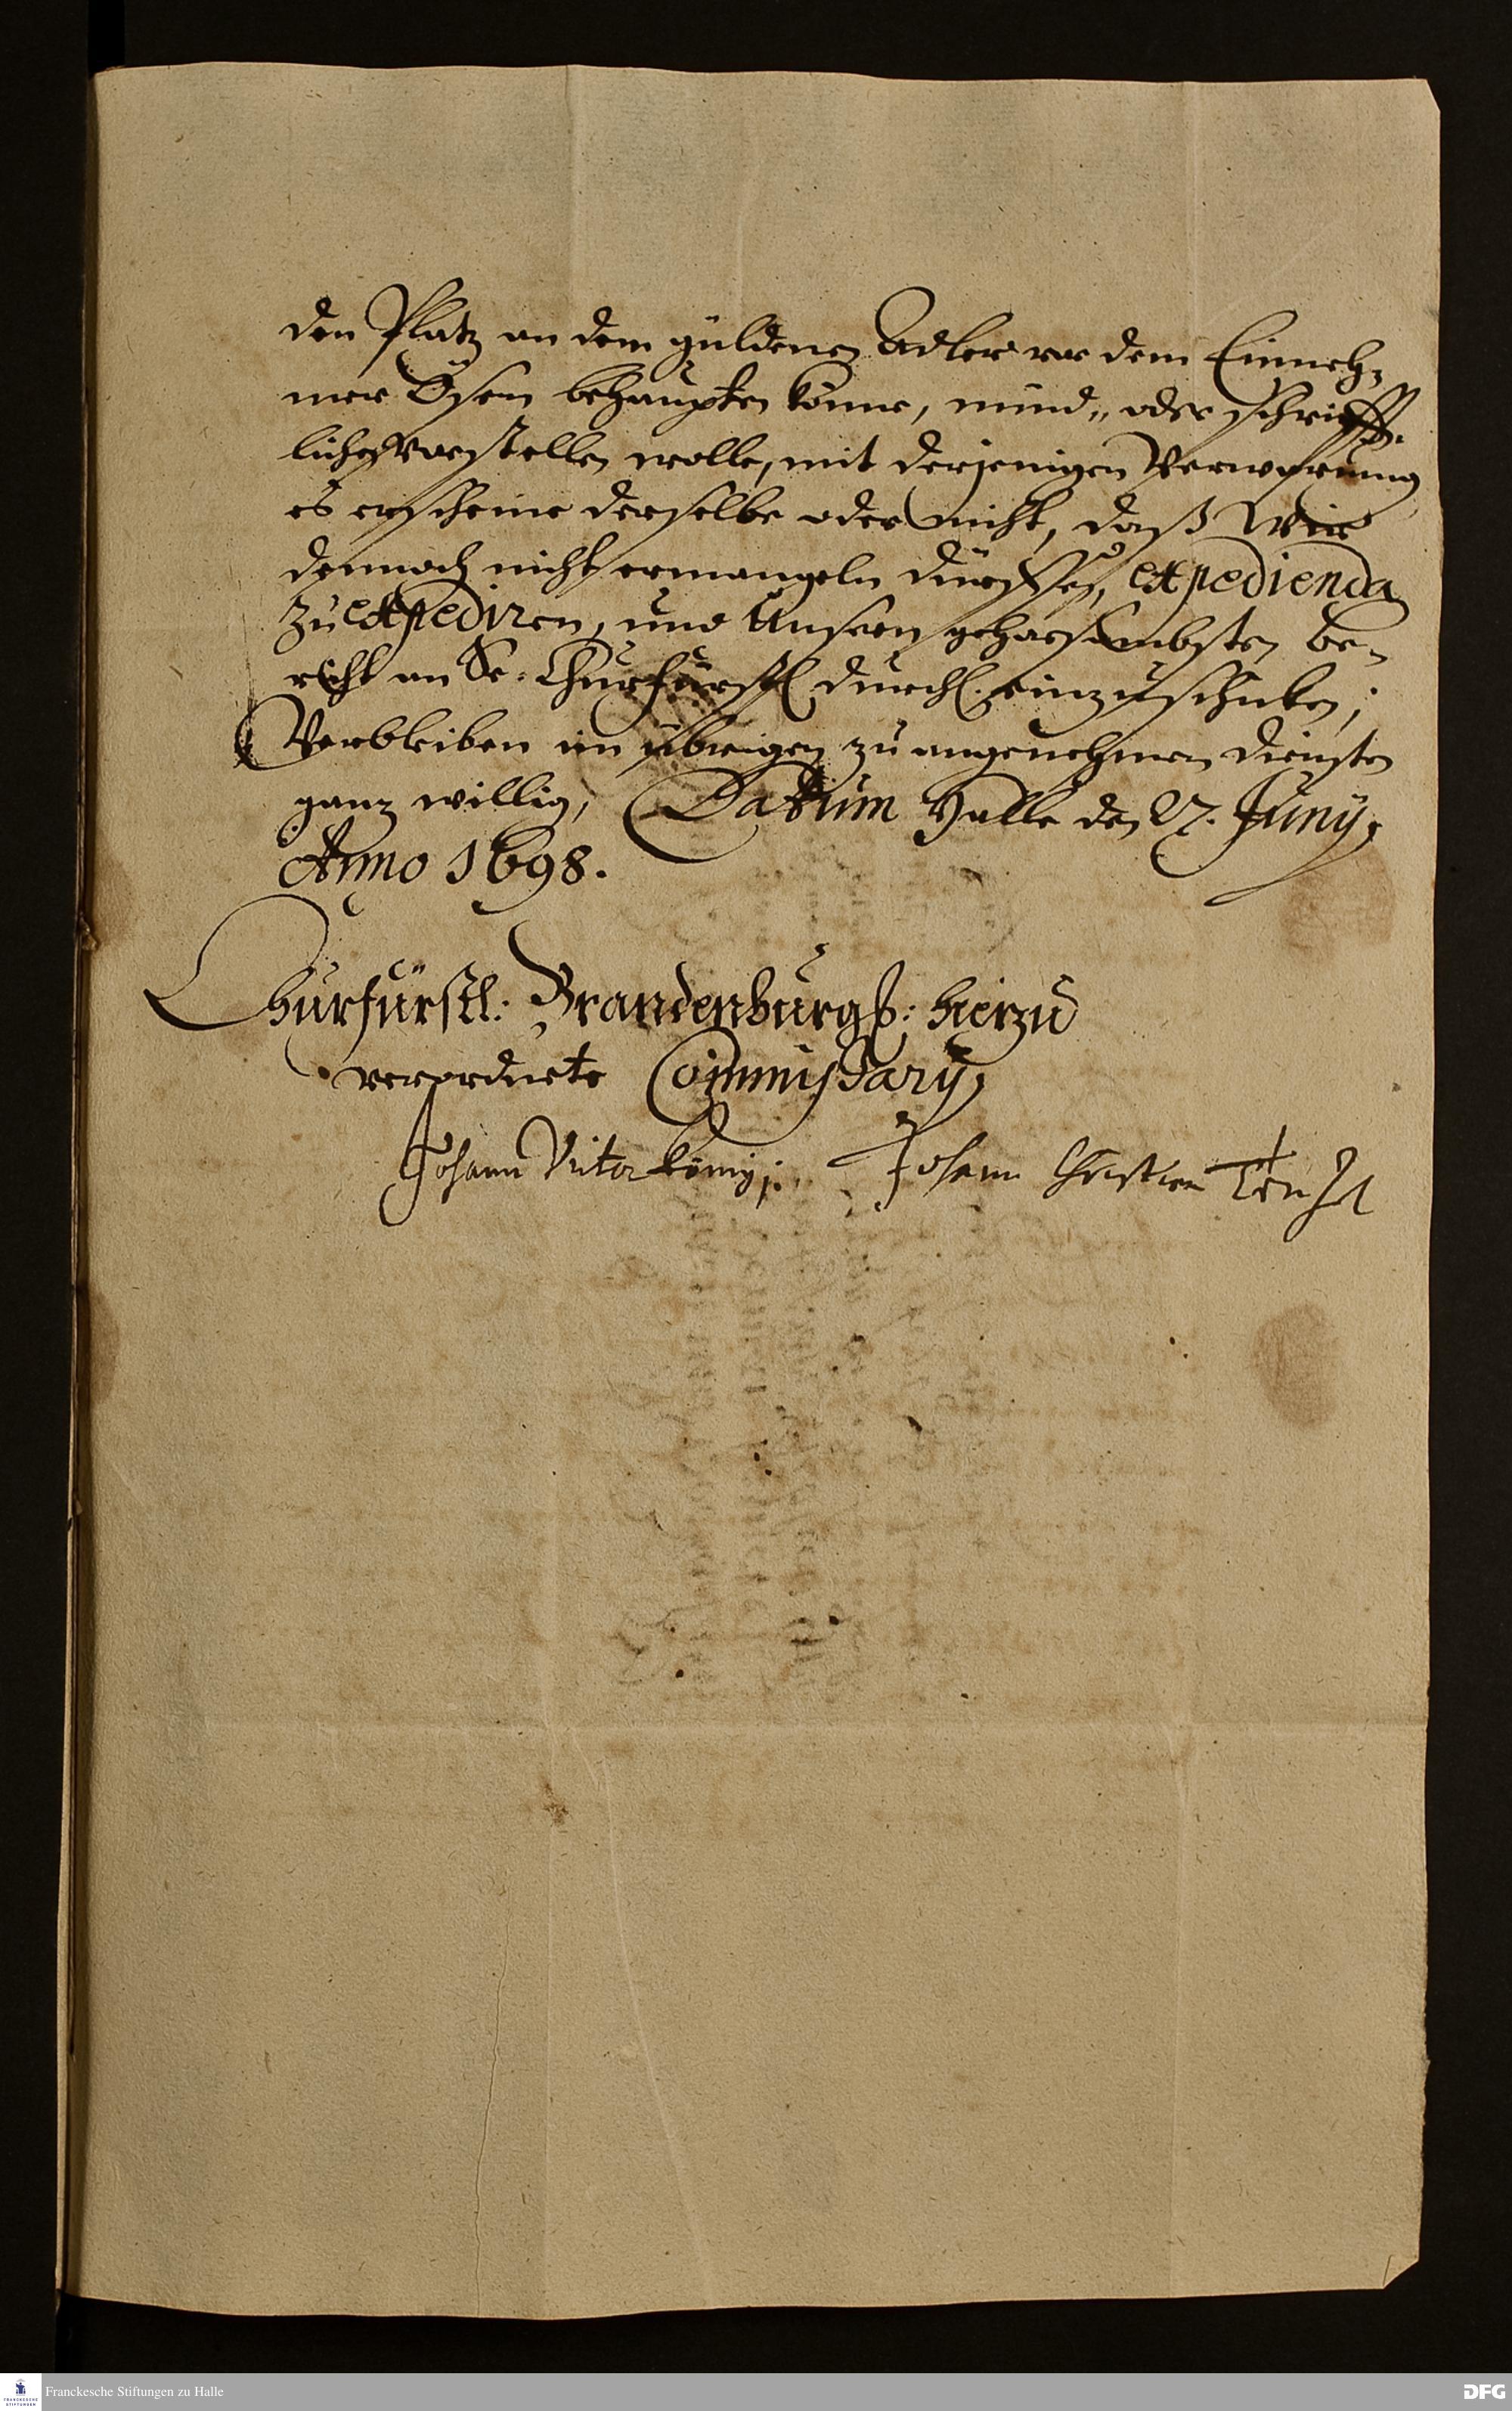 den Platz an dem güldenen Adler vor dem Einneh-
mer Ösen behaupten könne, münd- oder schrifft-
lichen vorstellen wolle, mit derjenigen Verwarnung
es erscheine derselbe oder nicht, daß Wir
dennoch nicht ermangeln dürffen, expedienda
zu expediren, und Unsern gehorsambsten be-
richt an Se: Churfürstl durchl. einzuschicken;
Verbleiben im übrigen zu angenehmen diensten
ganz willig, Datum Halle den 27. Juny,
Anno 1698.
Churfürstl: Brandenburgß: hierzu
verordnete Commissary,
Johann Vitor König
Johann Christian
Franckesche Stiftungen zu Halle
DFG